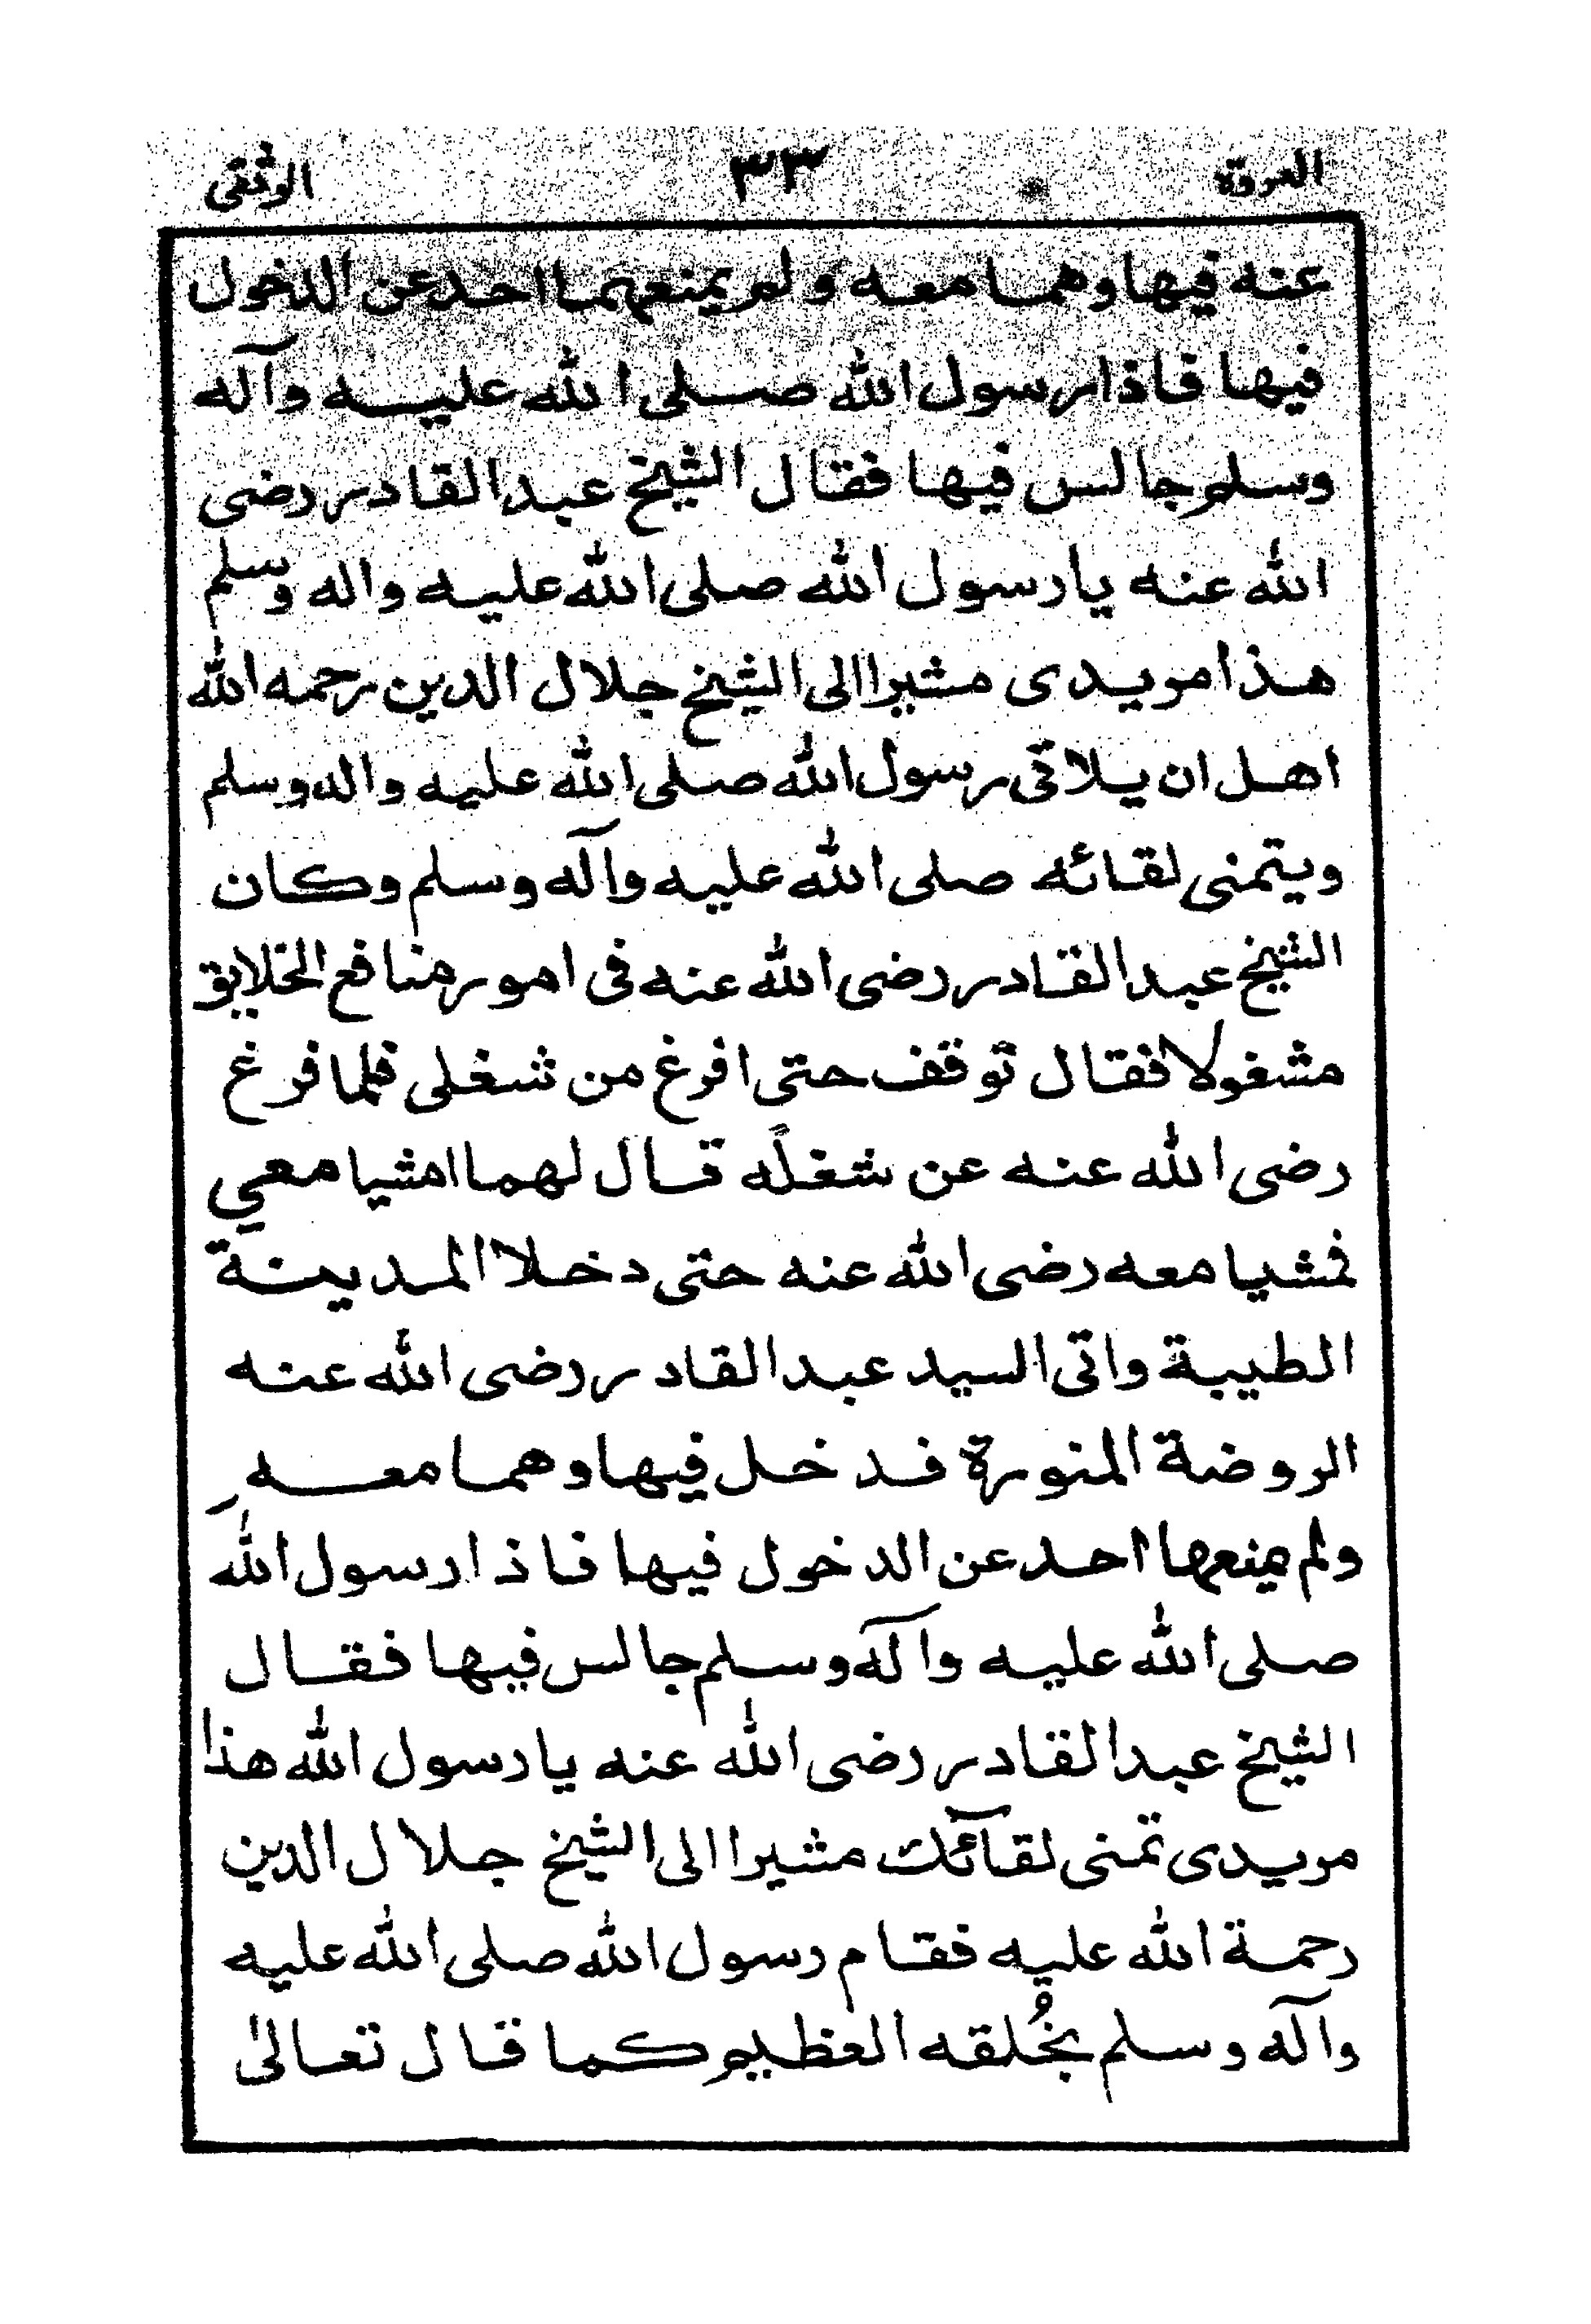 العروة ٣٣ الوثقى
عنه فيها وهما معه ولم يمنعهما احد عن الدخول
فيها فاذا رسول الله صلى الله عليه وآله
وسلم جالس فيها فقال الشيخ عبد القادر رضى
الله عنه يا رسول الله صلى الله عليه واله وسلم
هذا مريدى مشيرا الى الشيخ جلال الدين رحمه الله
اهل ان يلاقى رسول الله صلى الله عليه واله وسلم
ويتمنى لقائه صلى الله عليه وآله وسلم وكان
الشيخ عبد القادر رضى الله عنه فى امور منافع الخلايق
مشغولا فقال توقف حتى افرغ من شغلى فلما فرغ
رضى الله عنه عن شغله قال لهما امشيا معي
فمشيا معه رضى الله عنه حتى دخلا المدينة
الطيبة واتى السيد عبد القادر رضى الله عنه
الروضة المنورة فدخل فيها وهما معه
ولم يمنعهما احد عن الدخول فيها فاذا رسول الله
صلى الله عليه وآله وسلم جالس فيها فقال
الشيخ عبد القادر رضى الله عنه يا رسول الله هذا
مريدى تمنى لقآئك مشيرا الى الشيخ جلال الدين
رحمة الله عليه فقام رسول الله صلى الله عليه
وآله وسلم بخُلقه العظيم كما قال تعالىٰ